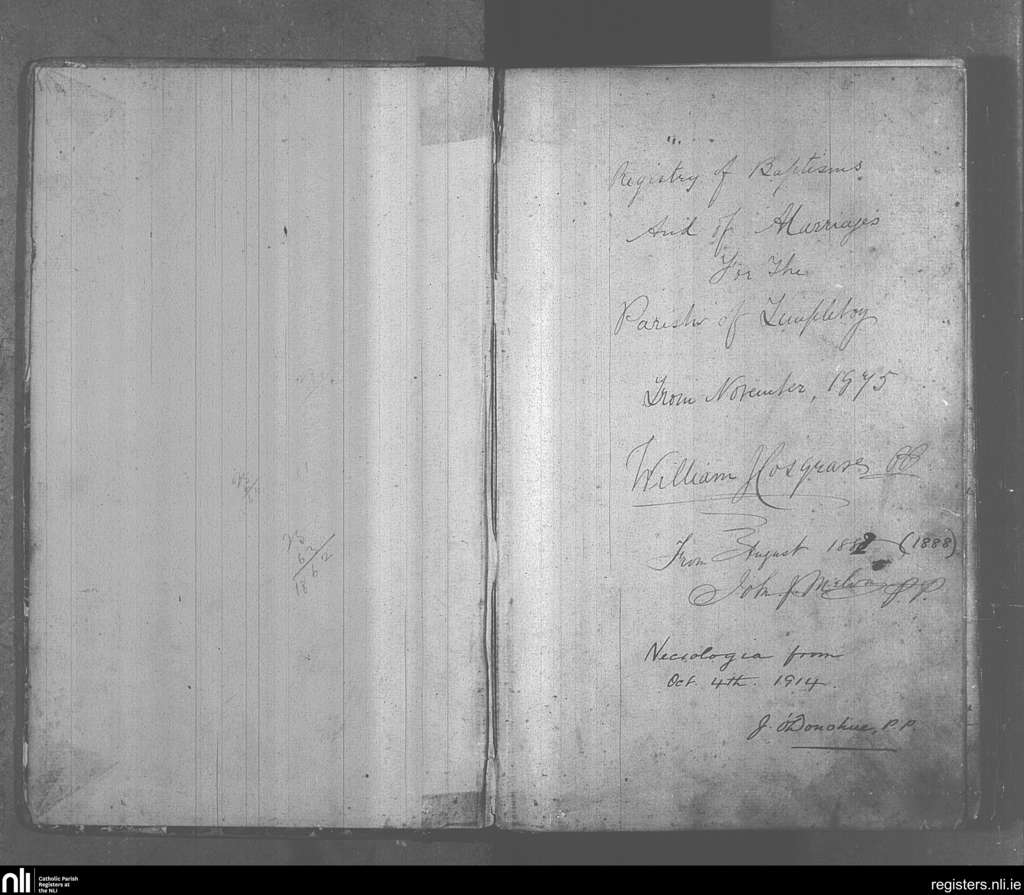 Registry of Baptisms
And of Marriages
For The
Parish of Templeboy
From November, 1875
William Cosgrave PP
From August 1888 (1888)
John J. P.P.
Necrologia from
Oct. 4th. 1914.
J. O'Donohue, P.P.
23
62
18 62
nli Catholic Parish
Registers at
the NLI
registers.nli.ie